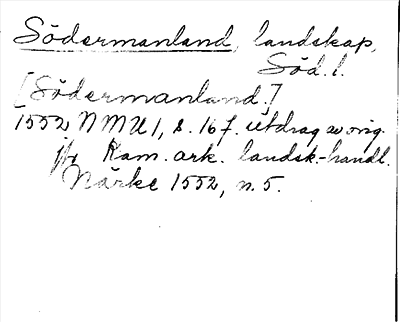 Södermanland, landskap,
Söd. l.
[Södermanland.]
1552 NMU 1, s. 16 f. utdrag av orig.
jfr Kam. ark. landsk.-handl.
Närke 1552, n. 5.